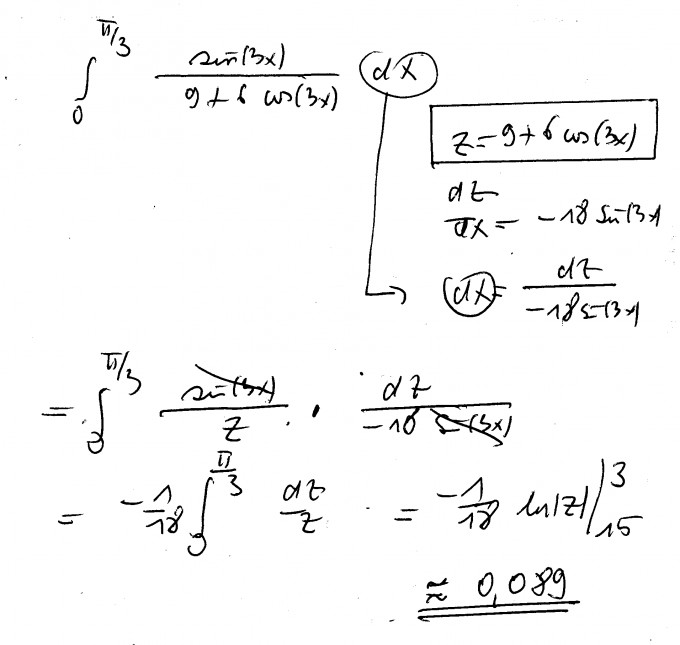 ∫₀^{π/3} sin(3x) / (9 + 6 cos(3x)) dx
z = 9 + 6 cos(3x)
dz/dx = -18 sin(3x)
dx = dz / (-18 sin(3x))
= ∫₀^{π/3} sin(3x) / z · dz / (-18 sin(3x))
= -1/18 ∫₀^{π/3} dz/z = -1/18 ln|z| |₁₅³
≈ 0,089